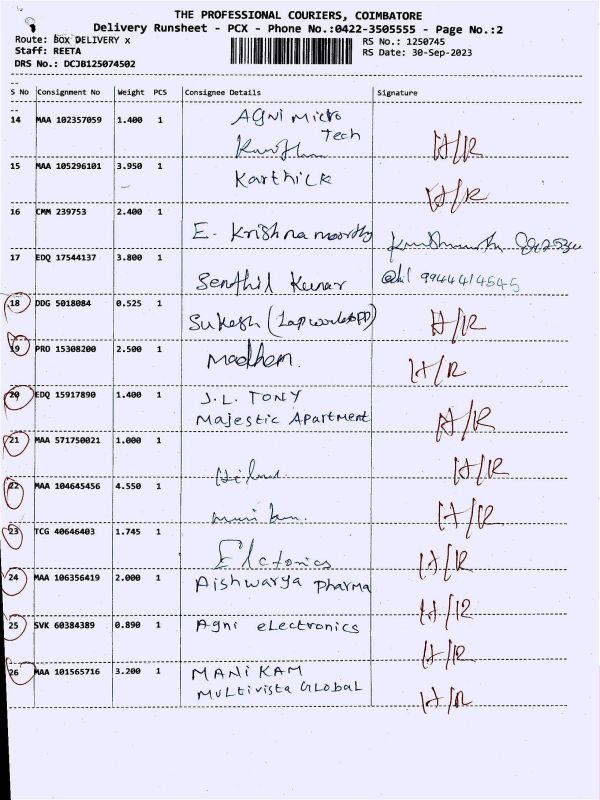 THE PROFESSIONAL COURIERS, COIMBATORE
Delivery Runsheet - PCX - Phone No.:0422-3505555 - Page No.:2
Route: BOX DELIVERY x
RS No.: 1250745
Staff: REETA
RS Date: 30-Sep-2023
DRS No.: DCJB125074502
S No Consignment No Weight PCS Consignee Details Signature
14 MAA 102357059 1.400 1 Agni Micro
Tech
H/R
15 MAA 105296101 3.950 1 Karthick
H/R
16 CMM 239753 2.400 1
E. Krishnamoorthy
17 EDQ 17544137 3.800 1
Senthil Kumar 9944414545
18 DDG 5018084 0.525 1
Sukesh ( H/R
19 PRO 15308200 2.500 1
H/R
20 EDQ 15917890 1.400 1 J.L. TONY
Majestic Apartment H/R
21 MAA 571750021 1.000 1
H/R
22 MAA 104645456 4.550 1
H/R
23 TCG 40646403 1.745 1
Elctonics H/R
24 MAA 106356419 2.000 1 Aishwarya Pharma
H/R
25 SVK 60384389 0.890 1 Agni electronics
H/R
26 MAA 101565716 3.200 1 MANIKAM
Multivista Global H/R